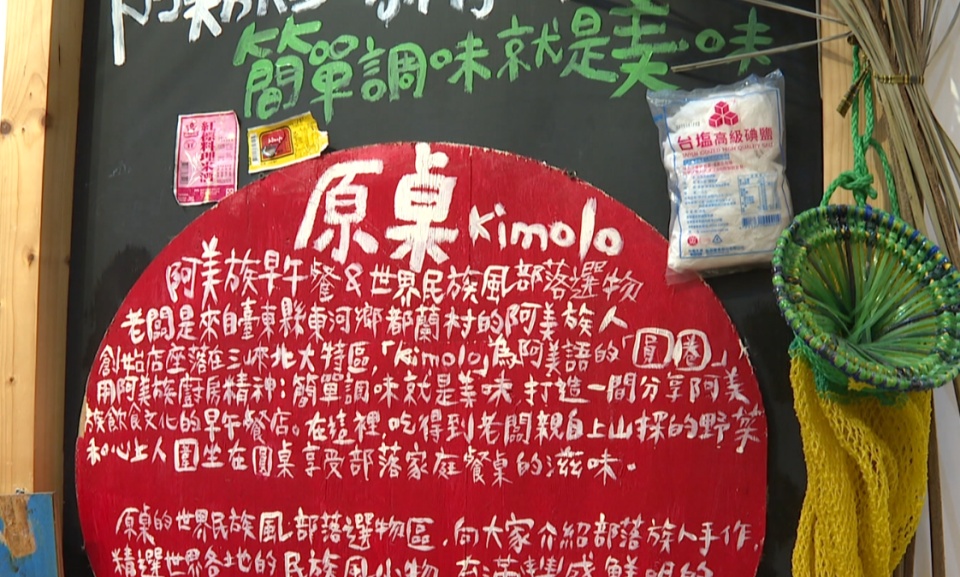 簡單調味就是美味
紅標料理米酒
台塩高級碘鹽
原桌 kimolo
阿美族早午餐&世界民族風部落選物
老闆是來自臺東縣東河鄉都蘭村的阿美族人
創始店座落在三峽北大特區,「kimolo」為阿美語的「圓圈」
用阿美族廚房精神:簡單調味就是美味,打造一間分享阿美
族飲食文化的早午餐店。在這裡,吃得到老闆親自上山採的野菜
和心上人圍坐在圓桌享受部落家庭餐桌的滋味。
原桌的世界民族風、部落選物區,向大家介紹部落族人手作,
精選世界各地的民族風小物